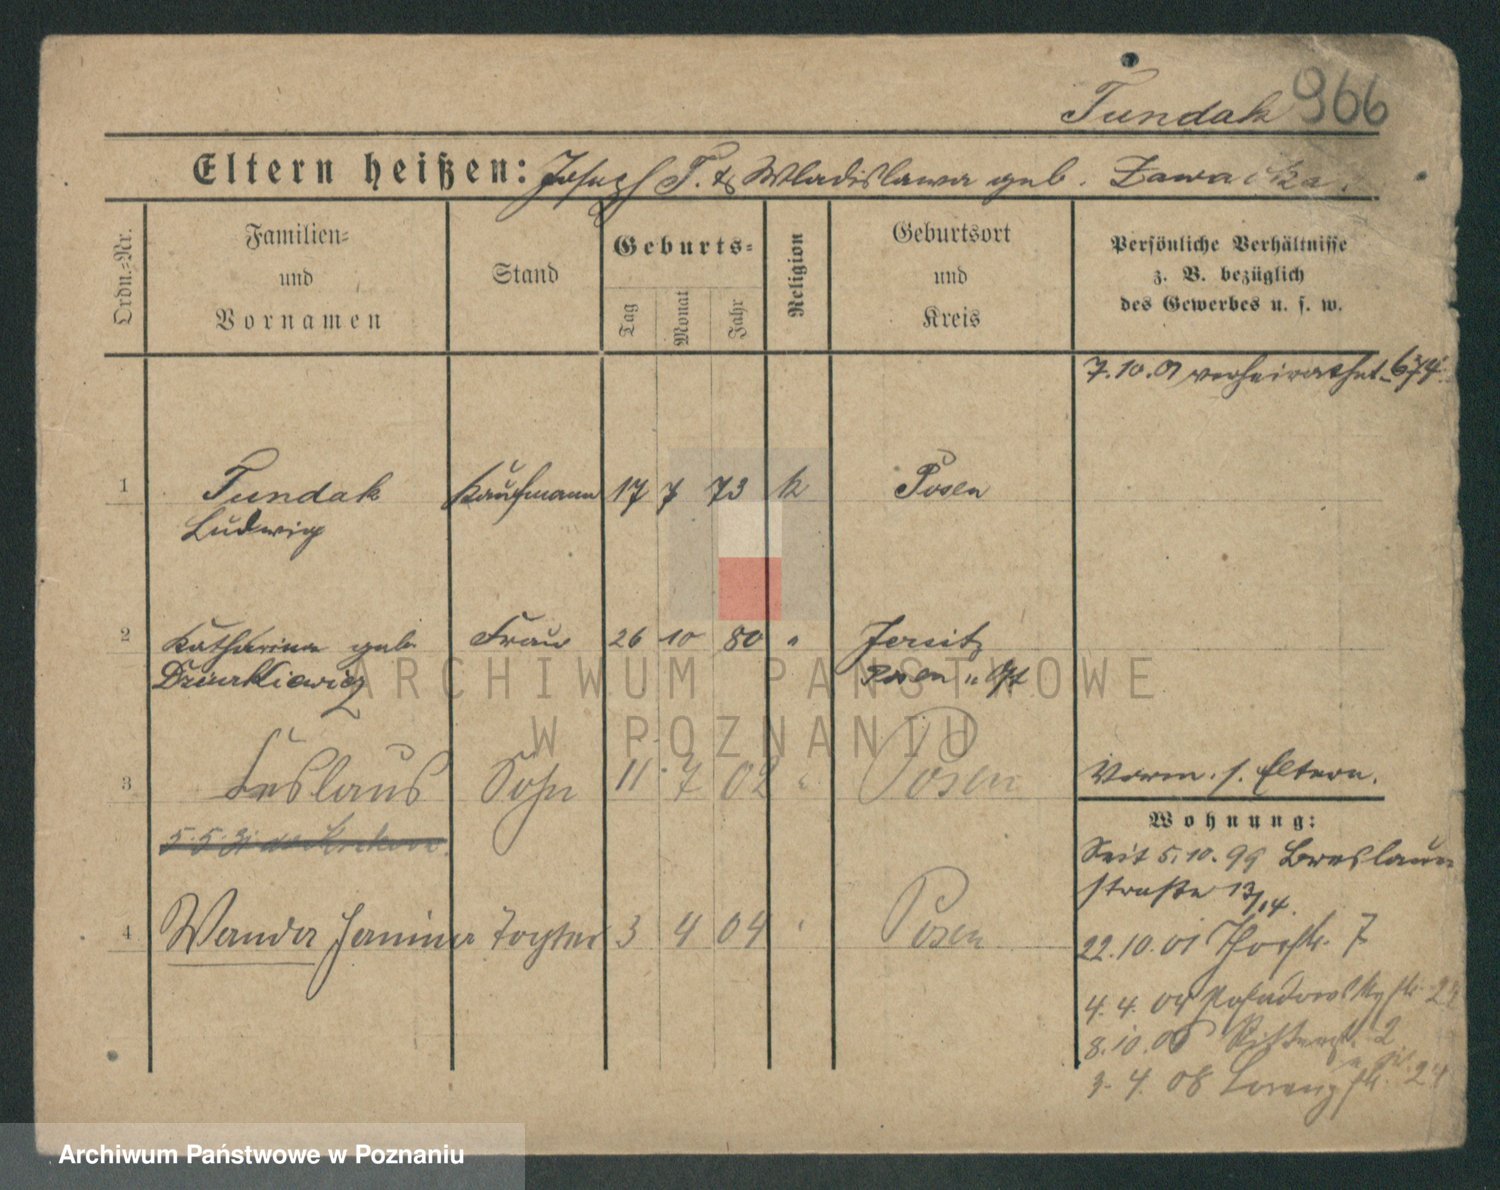 Tundak 966
Eltern heißen: Joseph T. & Wladislawa geb. Zawadzka.
Ordn.=Nr.
Familien=
und
Vornamen
Stand
Geburts=
Tag
Monat
Jahr
Religion
Geburtsort
und
Kreis
Persönliche Verhältnisse
z. B. bezüglich
des Gewerbes u. s. w.
7.10.01 verheirathet 674
1 Tundak Kaufmann 17 7 73 k Posen
Ludwig
2 Katharina geb. Frau 26 10 80 " Jersitz
Posen
3 Ceslaus Sohn 11 7 02 " Posen
Verm. s. Eltern.
Wohnung:
Seit 5.10.99 Breslauer
straße 13/14.
4 Wanda Janina Tochter 3 4 04 " Posen
22.10.01 7
4.4.04
8.10.06 2
3.4.08 Lorenzstr. 24
ARCHIWUM PAŃSTWOWE
W POZNANIU
Archiwum Państwowe w Poznaniu